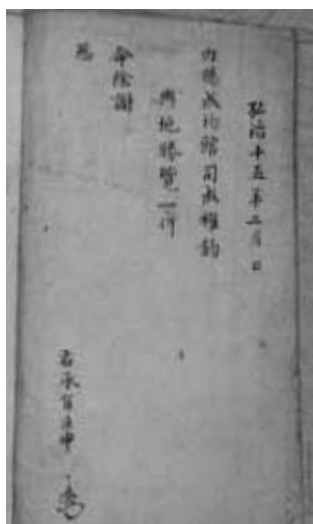 弘治十五年二月 日
內賜成均館司成權鈞
輿地勝覽一件
命除謝
恩
右承旨臣申